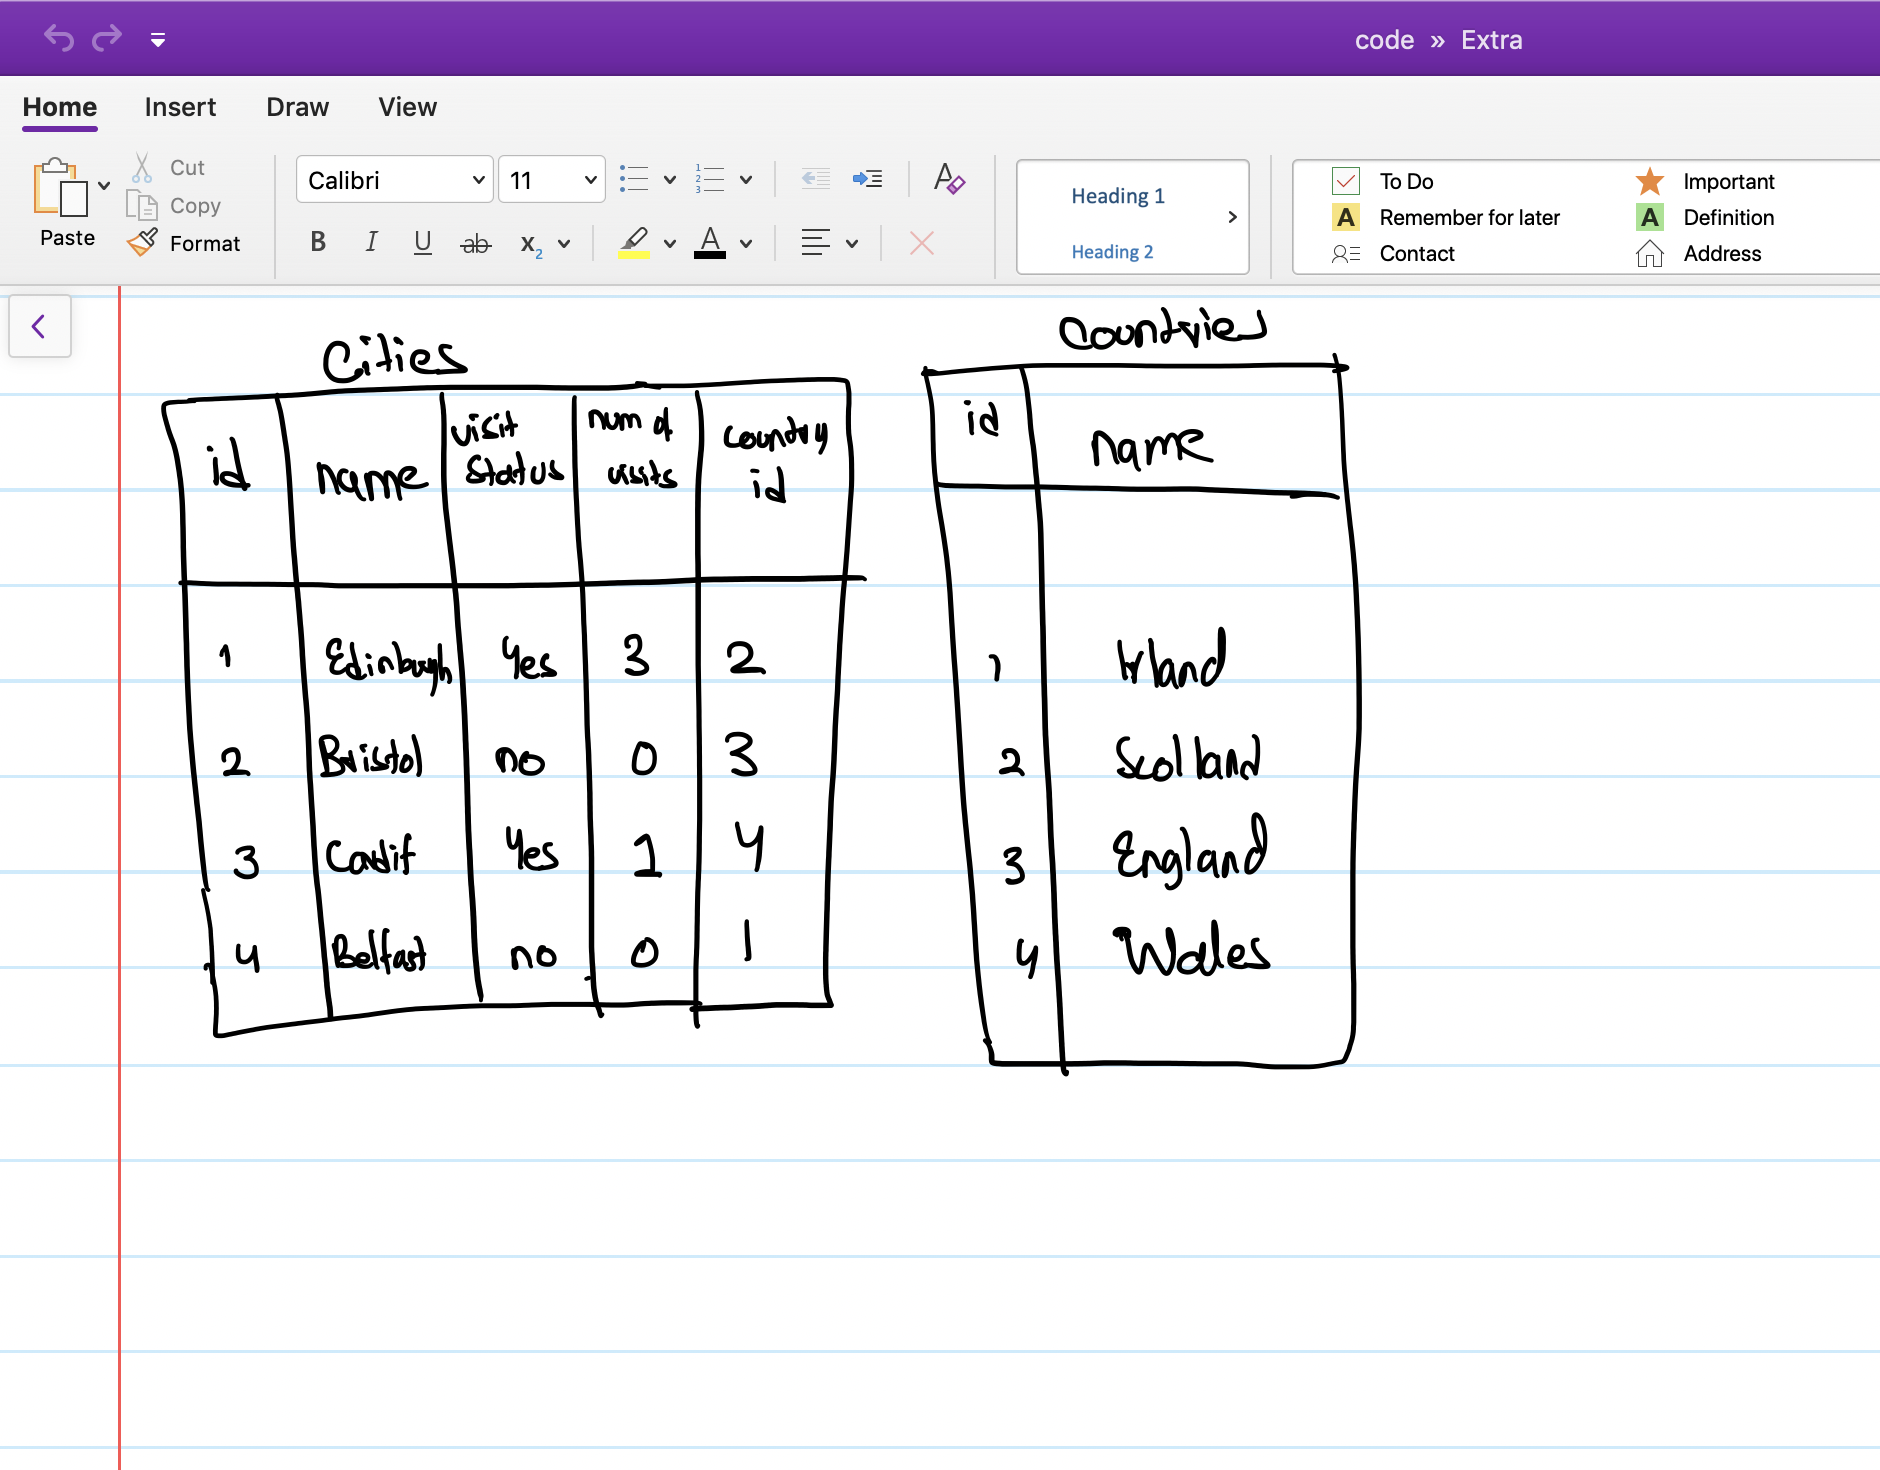 code » Extra
Home Insert Draw View
Cut
Copy
Paste Format
Calibri 11
B I U ab x2 A
Heading 1
Heading 2
To Do Important
Remember for later Definition
Contact Address
Cities
id name visit status num of visits country id
1 Edinbugh Yes 3 2
2 Bristol no 0 3
3 Cardif Yes 1 4
4 Belfast no 0 1
Countries
id name
1 Irland
2 Scotland
3 England
4 Wales